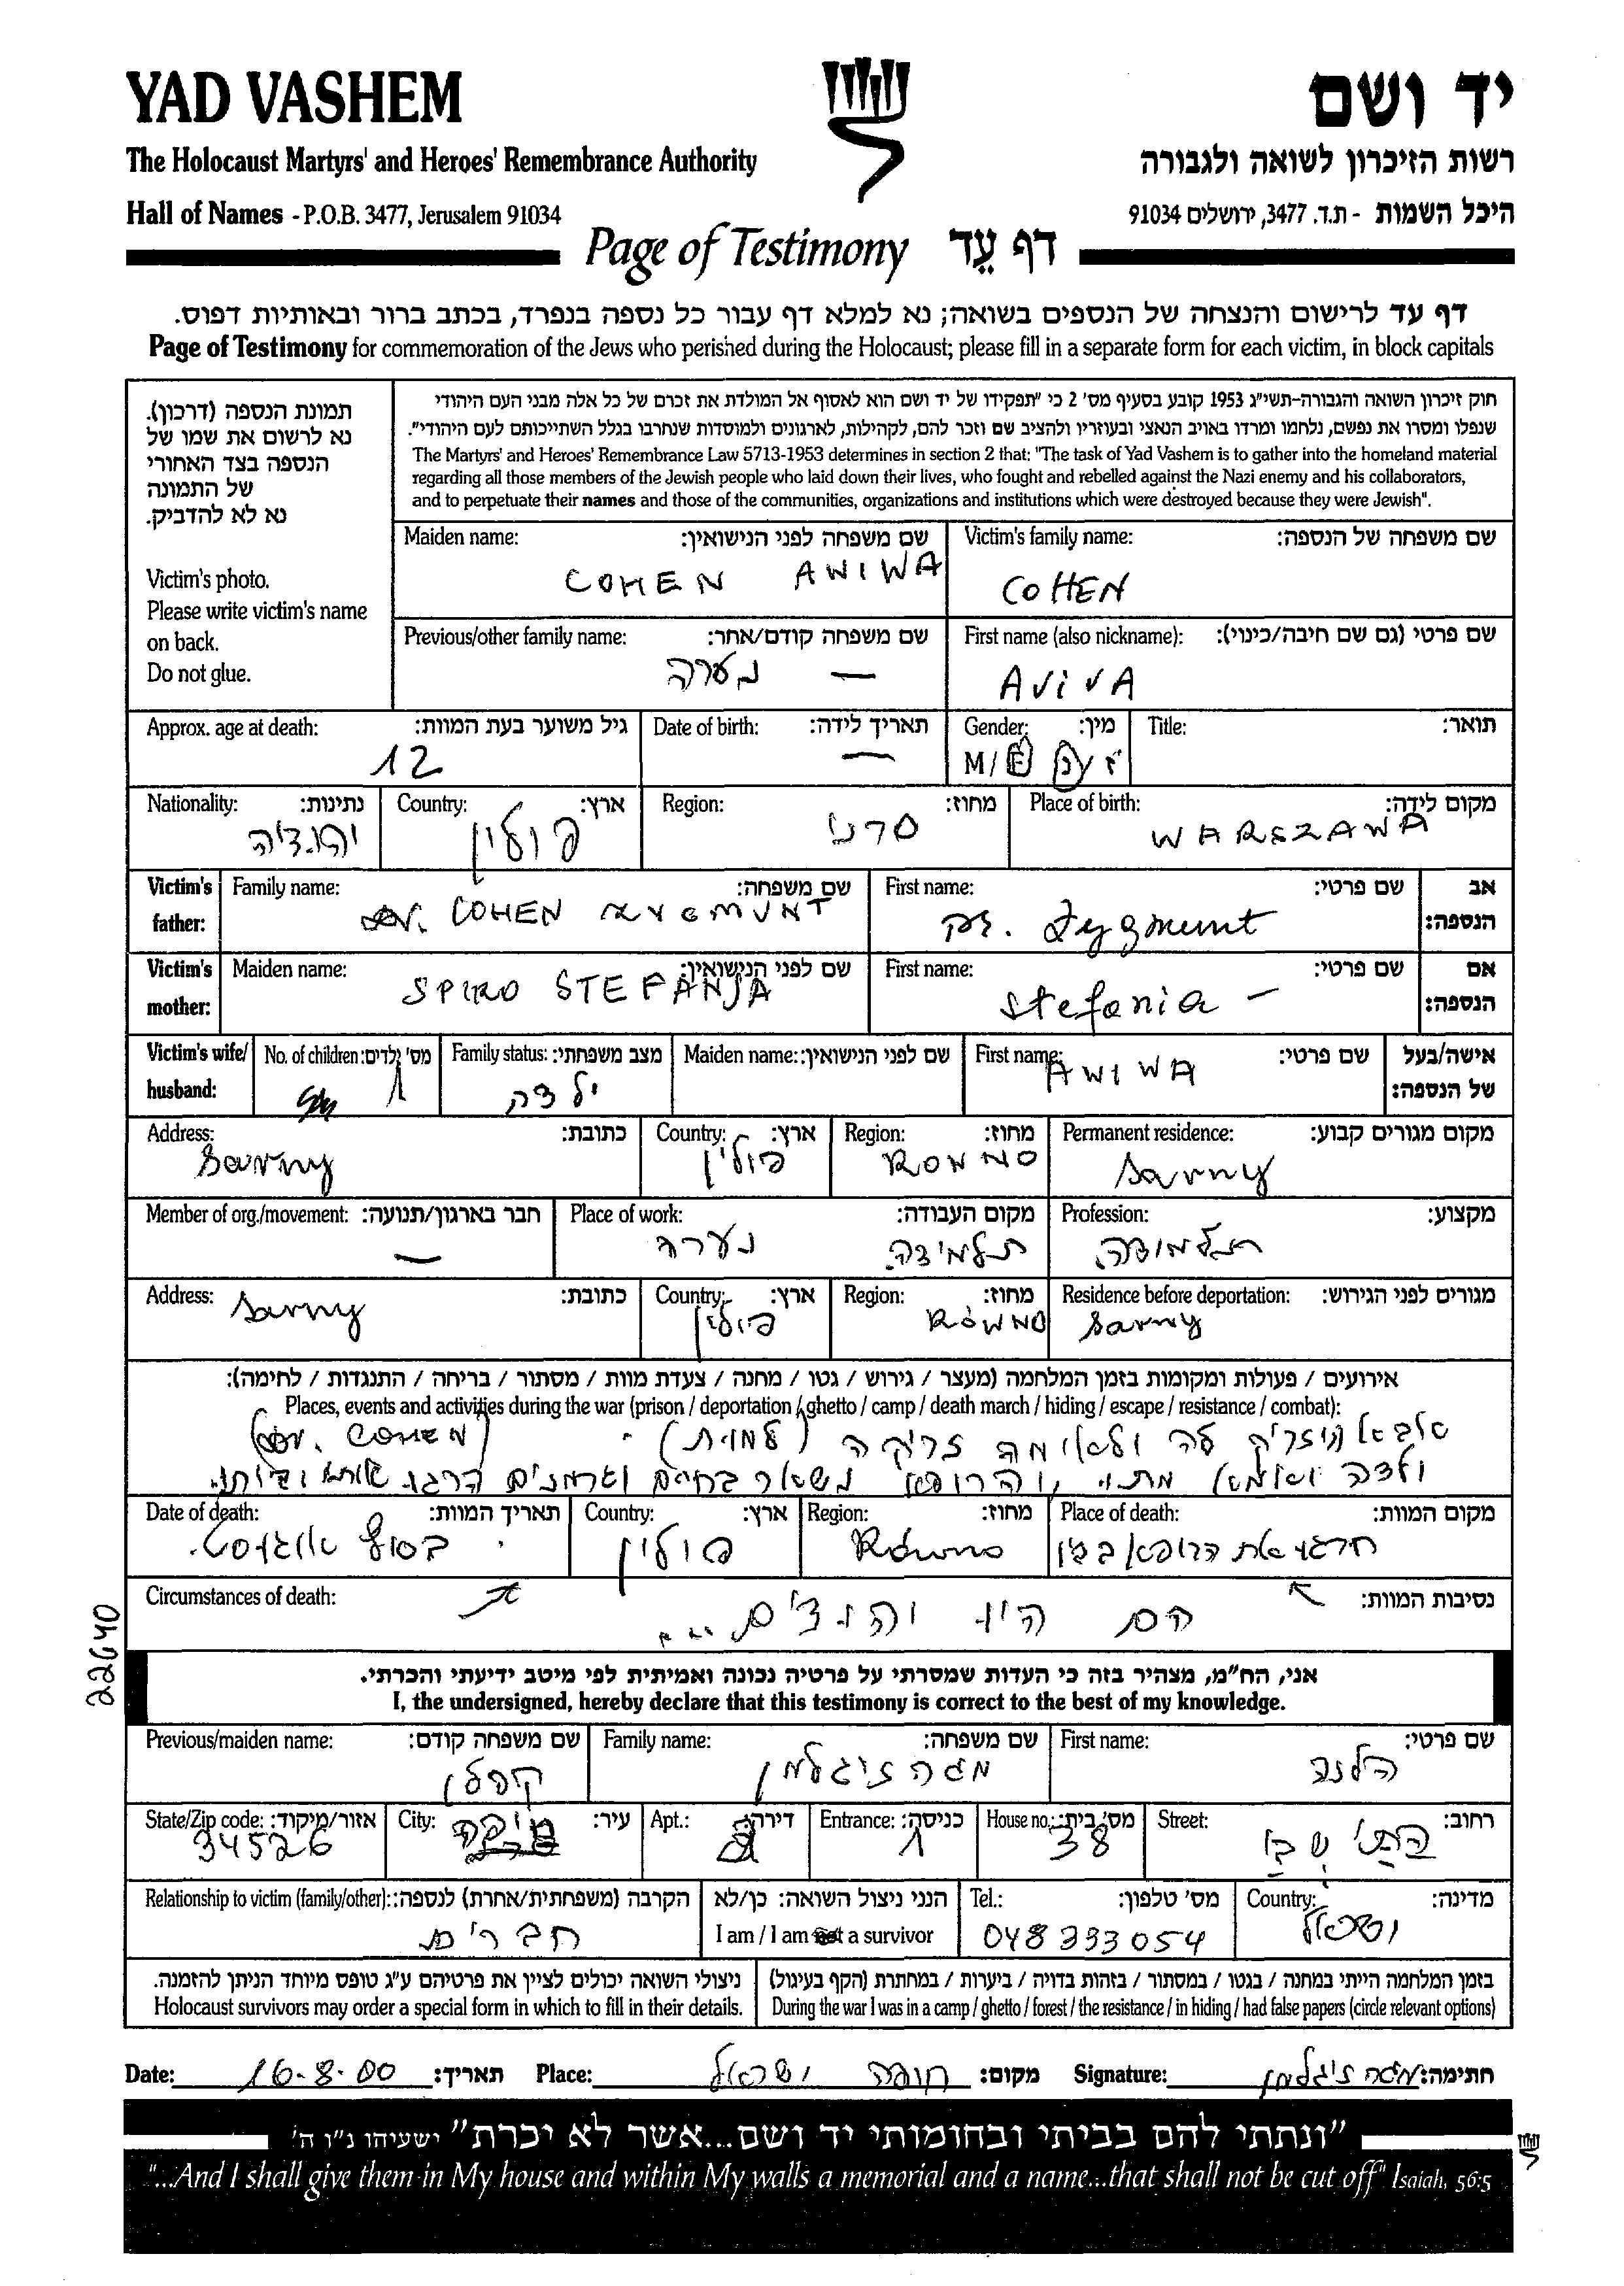 YAD VASHEM
יד ושם
The Holocaust Martyrs' and Heroes' Remembrance Authority
רשות הזיכרון לשואה ולגבורה
Hall of Names - P.O.B. 3477, Jerusalem 91034
היכל השמות - ת.ד. 3477, ירושלים 91034
Page of Testimony דף עֵד
דף עד לרישום והנצחה של הנספים בשואה; נא למלא דף עבור כל נספה בנפרד, בכתב ברור ובאותיות דפוס.
Page of Testimony for commemoration of the Jews who perished during the Holocaust; please fill in a separate form for each victim, in block capitals
תמונת הנספה (דרכון).
נא לרשום את שמו של
הנספה בצד האחורי
של התמונה
נא לא להדביק.
Victim's photo.
Please write victim's name
on back.
Do not glue.
חוק זיכרון השואה והגבורה-תשי"ג 1953 קובע בסעיף מס' 2 כי "תפקידו של יד ושם הוא לאסוף אל המולדת את זכרם של כל אלה מבני העם היהודי
שנפלו ומסרו את נפשם, נלחמו ומרדו באויב הנאצי ובעוזריו ולהציב שם וזכר להם, לקהילות, לארגונים ולמוסדות שנחרבו בגלל השתייכותם לעם היהודי".
The Martyrs' and Heroes' Remembrance Law 5713-1953 determines in section 2 that: "The task of Yad Vashem is to gather into the homeland material
regarding all those members of the Jewish people who laid down their lives, who fought and rebelled against the Nazi enemy and his collaborators,
and to perpetuate their names and those of the communities, organizations and institutions which were destroyed because they were Jewish".
Victim's family name: שם משפחה של הנספה:
COHEN
Maiden name: שם משפחה לפני הנישואין:
COHEN AWIWA
First name (also nickname): שם פרטי (גם שם חיבה/כינוי):
AVIVA
Previous/other family name: שם משפחה קודם/אחר:
— נערה
Title: תואר:
Gender: מין:
M/F ז/נ
Date of birth: תאריך לידה:
—
Approx. age at death: גיל משוער בעת המוות:
12
Place of birth: מקום לידה:
WARSZAWA
Region: מחוז:
סרני
Country: ארץ:
פולין
Nationality: נתינות:
יהודיה
Victim's father: אב הנספה:
First name: שם פרטי:
דר. Zygmunt
Family name: שם משפחה:
Dr. COHEN ZYGMUNT
Victim's mother: אם הנספה:
First name: שם פרטי:
Stefania —
Maiden name: שם לפני הנישואין:
SPIRO STEFANJA
Victim's wife/ husband: אישה/בעל של הנספה:
First name: שם פרטי:
AWIWA
Maiden name: שם לפני הנישואין:
Family status: מצב משפחתי:
ילדה
No. of children: מס' ילדים:
1
Permanent residence: מקום מגורים קבוע:
Sarny
Region: מחוז:
ROWNO
Country: ארץ:
פולין
Address: כתובת:
Sarny
Profession: מקצוע:
תלמידה
Place of work: מקום העבודה:
תלמידה נערה
Member of org./movement: חבר בארגון/תנועה:
—
Residence before deportation: מגורים לפני הגירוש:
Sarny
Region: מחוז:
RÓWNO
Country: ארץ:
פולין
Address: כתובת:
Sarny
אירועים / פעולות ומקומות בזמן המלחמה (מעצר / גירוש / גטו / מחנה / צעדת מוות / מסתור / בריחה / התנגדות / לחימה):
Places, events and activities during the war (prison / deportation / ghetto / camp / death march / hiding / escape / resistance / combat):
לה ולאומה זריקה (למוית) (Dr. COHEN)
ילדה ואמא מתו, והרופא נשאר בחיים וגרמנים הרגו אותו
Place of death: מקום המוות:
הרגו את הרופא
Region: מחוז:
Równo
Country: ארץ:
פולין
Date of death: תאריך המוות:
בסוף אוגוסט.
Circumstances of death: נסיבות המוות:
הם היו יהודים...
22640
אני, הח"מ, מצהיר בזה כי העדות שמסרתי על פרטיה נכונה ואמיתית לפי מיטב ידיעתי והכרתי.
I, the undersigned, hereby declare that this testimony is correct to the best of my knowledge.
First name: שם פרטי:
הלנה
Family name: שם משפחה:
מגה זיגלמן
Previous/maiden name: שם משפחה קודם:
קפלן
Street: רחוב:
התשבי
House no.: מס' בית:
38
Entrance: כניסה:
1
Apt.: דירה:
City: עיר:
חיפה
State/Zip code: אזור/מיקוד:
34526
Country: מדינה:
ישראל
Tel.: מס' טלפון:
048333054
הנני ניצול השואה: כן/לא
I am / I am not a survivor
Relationship to victim (family/other): הקרבה (משפחתית/אחרת) לנספה:
חברים
בזמן המלחמה הייתי במחנה / בגטו / במסתור / בזהות בדויה / ביערות / במחתרת (הקף בעיגול)
During the war I was in a camp / ghetto / forest / the resistance / in hiding / had false papers (circle relevant options)
ניצולי השואה יכולים לציין את פרטיהם ע"ג טופס מיוחד הניתן להזמנה.
Holocaust survivors may order a special form in which to fill in their details.
Date: 16-8-00 תאריך: Place: חיפה ישראל מקום: Signature: מגה זיגלמן חתימה:
"ונתתי להם בביתי ובחומותי יד ושם...אשר לא יכרת" ישעיהו נ"ו ה'
"...And I shall give them in My house and within My walls a memorial and a name...that shall not be cut off" Isaiah, 56:5